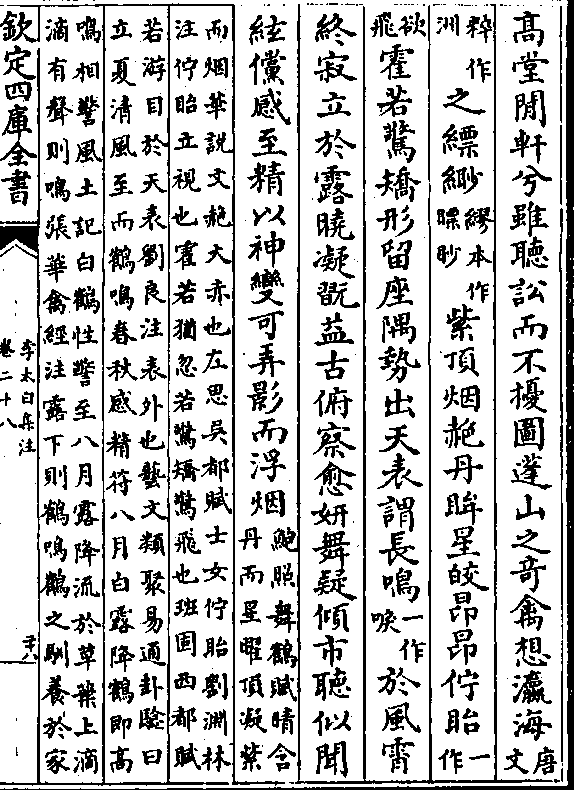 髙堂閒軒兮雖聽訟而不擾圖蓬山之奇禽想瀛海唐文
粹作洲之縹緲繆本作瞟眇紫頂烟赩丹眸星皎昻昻佇眙一作
欲飛霍若驚矯形留座隅勢出天表謂長鳴一作唳於風霄
終寂立於露曉凝翫益古俯察愈妍舞疑傾市聽似聞
絃儻感至精以神變可弄影而浮烟鮑照舞鶴賦睛含丹而星曜頂凝紫
而烟華説文赩大赤也左思吳都賦士女佇眙劉淵林
注佇眙立視也霍若猶忽若驚矯驚飛也班固西都賦
若游目於天表劉良注表外也藝文類聚易通卦驗曰
立夏清風至而鶴鳴春秋感精符八月白露降鶴即髙
鳴相警風土記白鶴性警至八月露降流於草葉上滴
滴有聲則鳴張華禽經注露下則鶴鳴鶴之馴養於家
欽定四庫全書
李太白集注
卷二十八